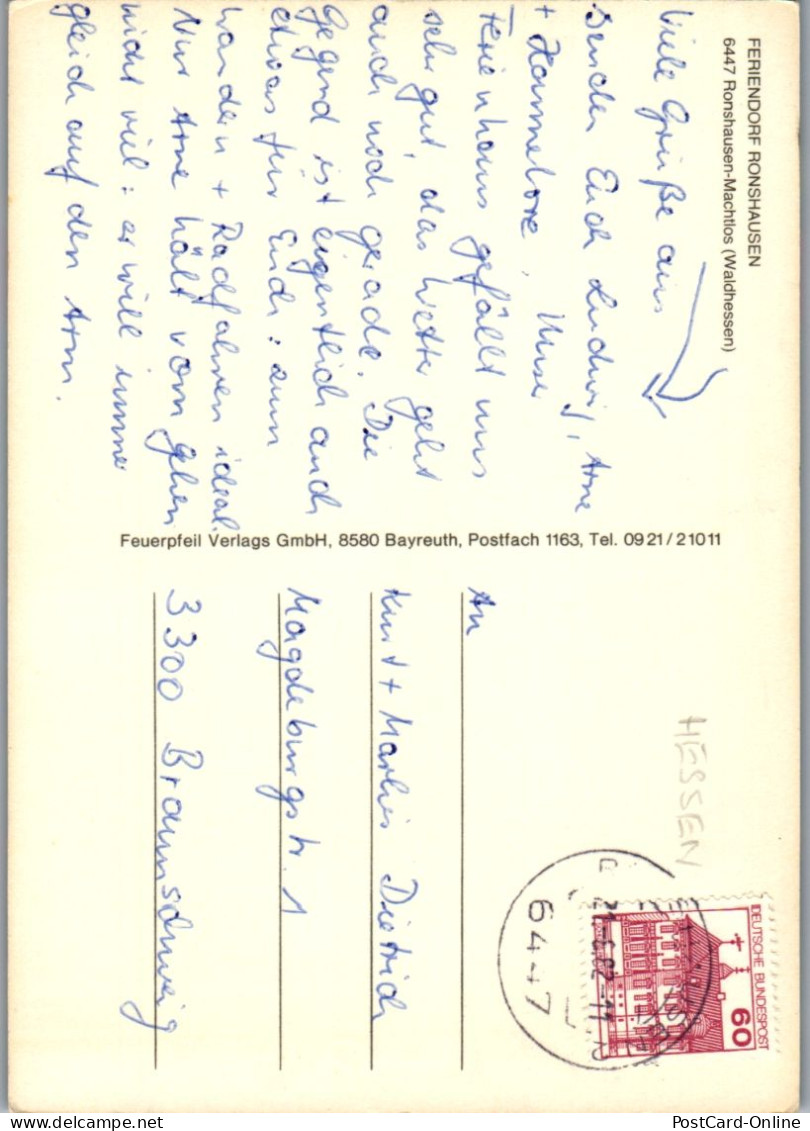 FERIENDORF RONSHAUSEN
6447 Ronshausen-Machtlos (Waldhessen)
Viele Grüße aus
senden Euch Ludwig, Arne
+ Hannelore. Unser
Ferienhaus gefällt uns
sehr gut, das Wetter geht
auch noch gerade. Die
Gegend ist eigentlich auch
etwas für Euch: zum
Wandern + Radfahren ideal.
Nur Arne hält vom gehen
nicht viel: er will immer
gleich auf den Arm.
Feuerpfeil Verlags GmbH, 8580 Bayreuth, Postfach 1163, Tel. 0921/21011
An
Kurt + Marlies Dietrich
Magdeburgstr. 1
3300 Braunschweig
HESSEN
DEUTSCHE BUNDESPOST
60
6447
PostCard-Online